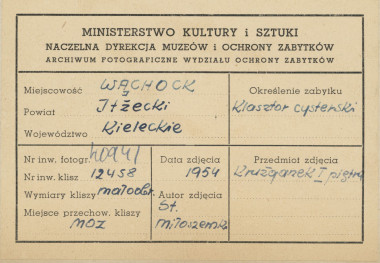 MINISTERSTWO KULTURY i SZTUKI
NACZELNA DYREKCJA MUZEÓW i OCHRONY ZABYTKÓW
ARCHIWUM FOTOGRAFICZNE WYDZIAŁU OCHRONY ZABYTKÓW
Miejscowość WĄCHOCK
Powiat Iłżecki
Województwo Kieleckie
Określenie zabytku
Klasztor cysterski
Nr inw. fotogr. 40941
Nr inw. klisz 12458
Wymiary kliszy małoobr.
Miejsce przechow. kliszy
MOZ
Data zdjęcia
1954
Autor zdjęcia
St.
Miłoszewski
Przedmiot zdjęcia
Krużganek I piętra